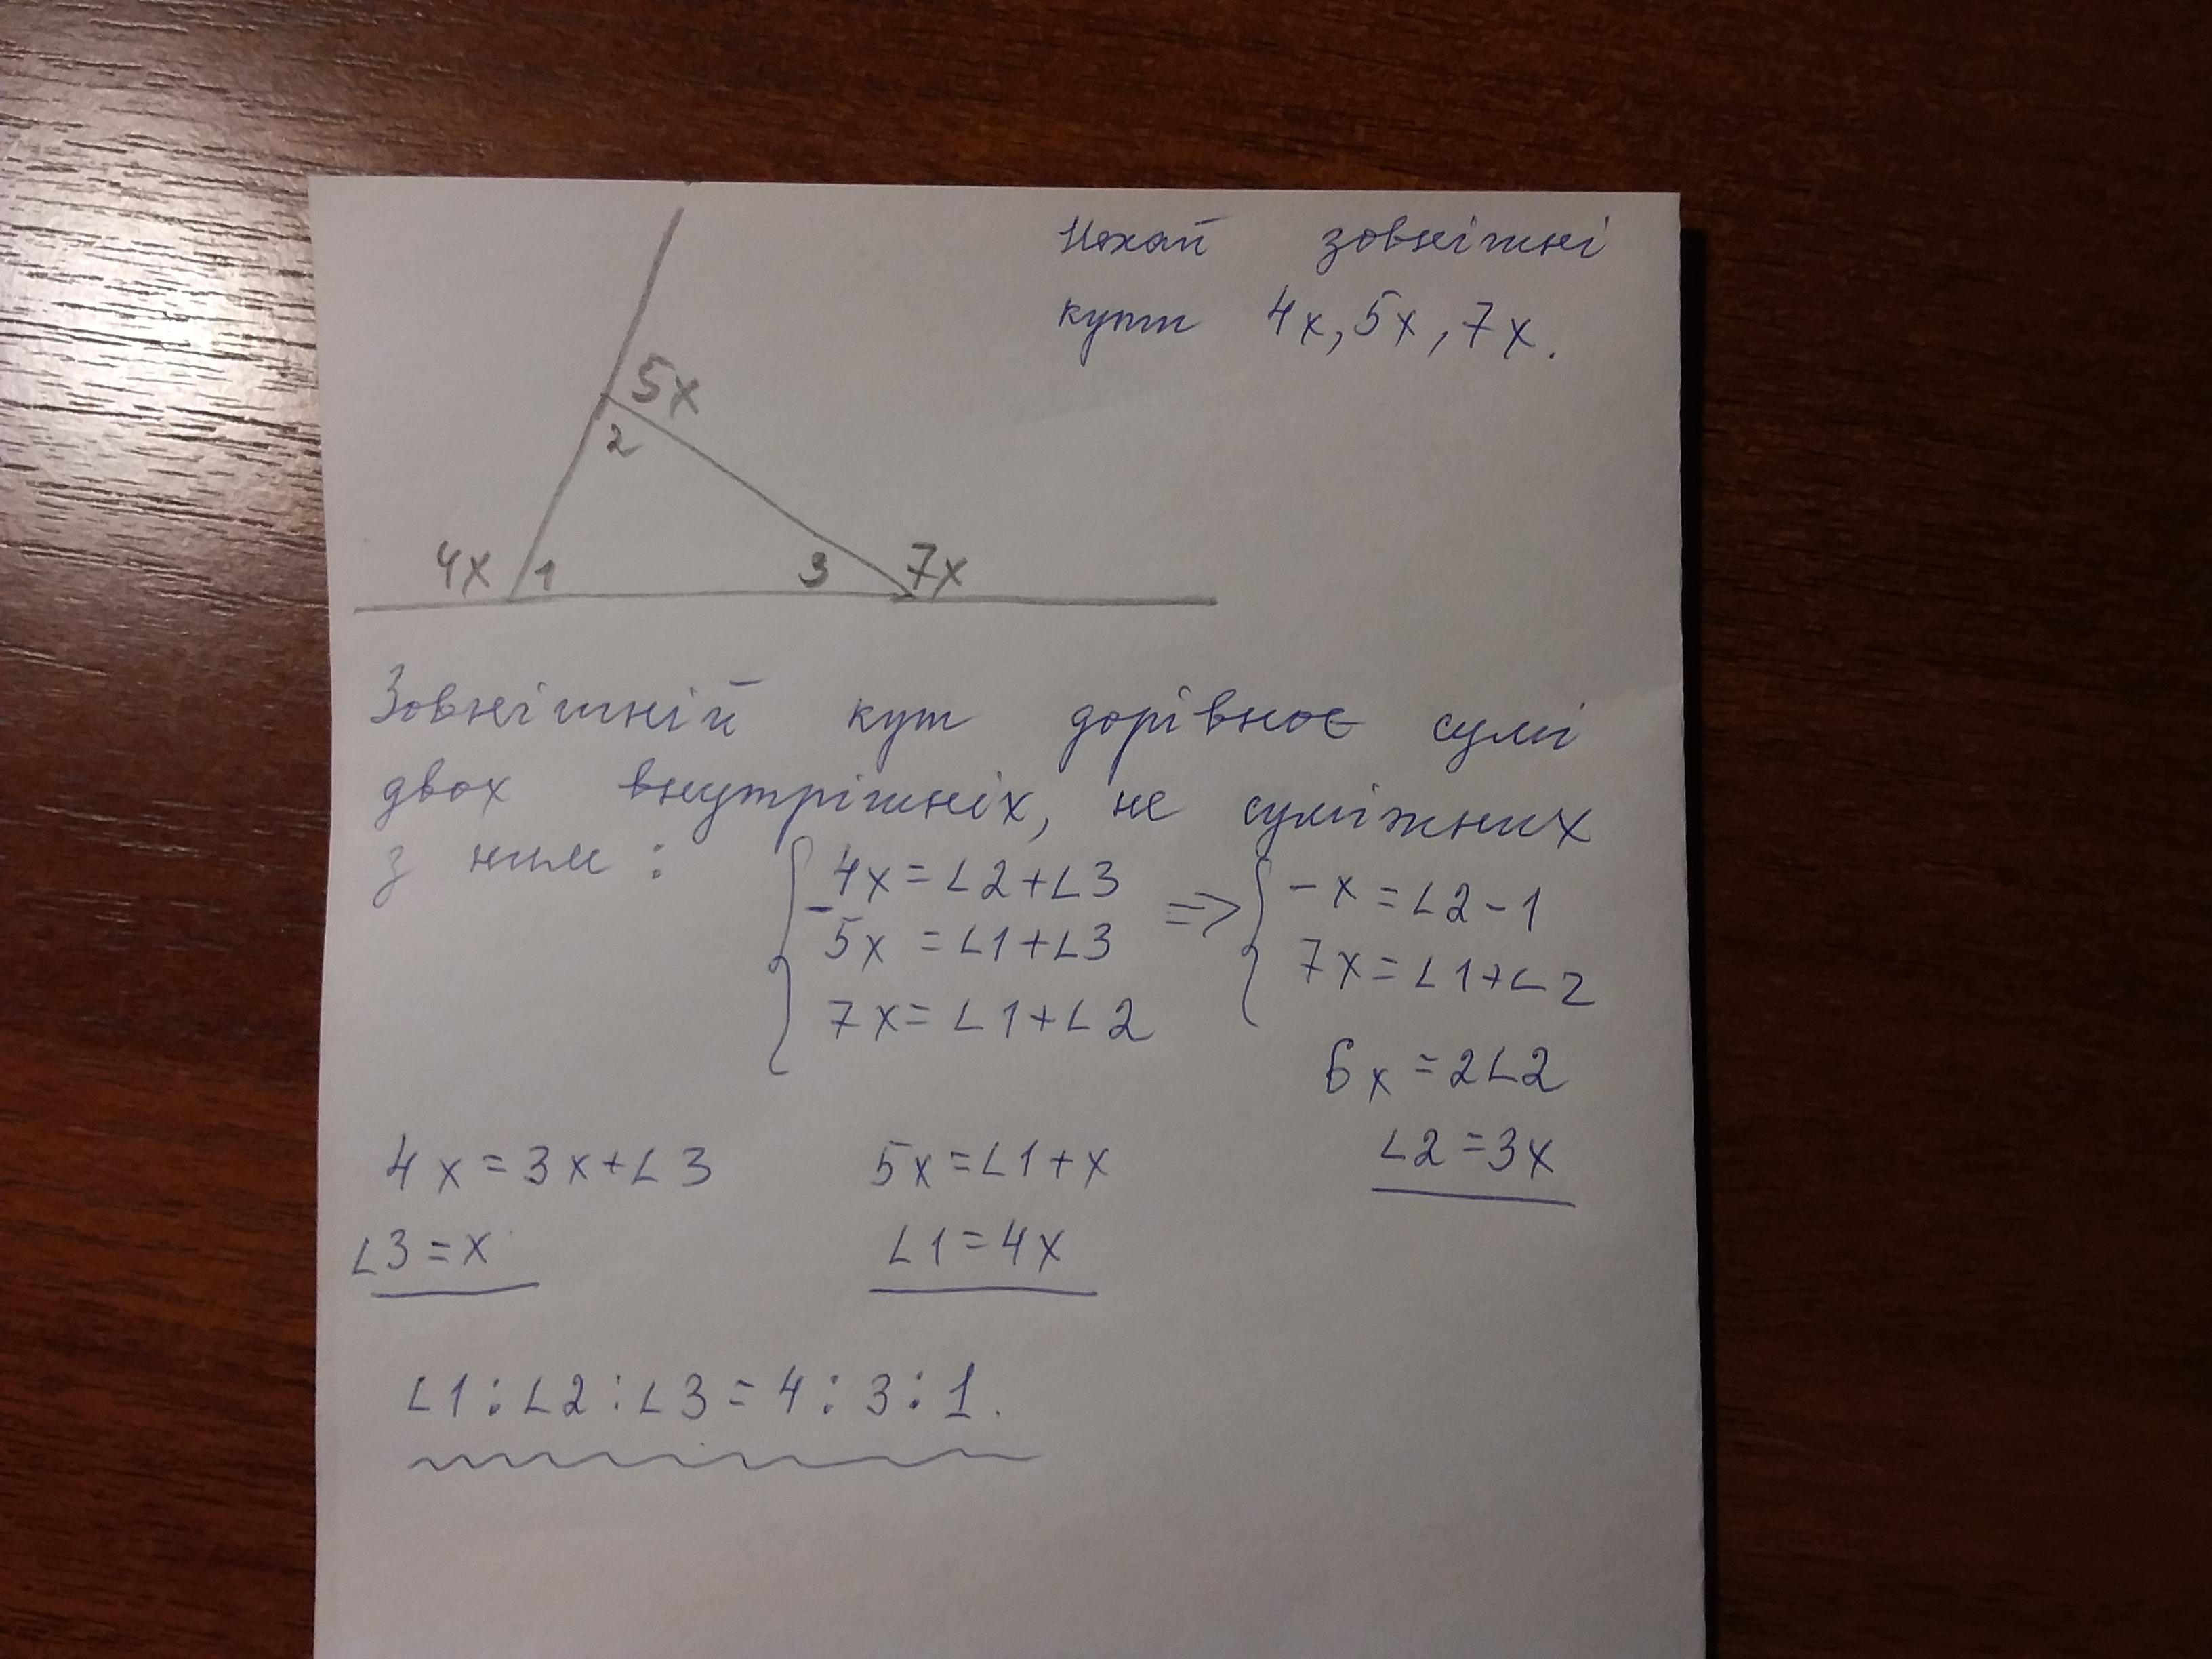 Нехай зовнішні
кути 4x, 5x, 7x.
5x
2
4x 1 3 7x
Зовнішній кут дорівнює сумі
двох внутрішніх, не суміжних
з ним:
4x = ∠2+∠3
- 5x = ∠1+∠3
7x = ∠1+∠2
=> -x = ∠2-1
7x = ∠1+∠2
6x = 2∠2
∠2 = 3x
4x = 3x+∠3
∠3 = x
5x = ∠1+x
∠1 = 4x
∠1:∠2:∠3 = 4:3:1.